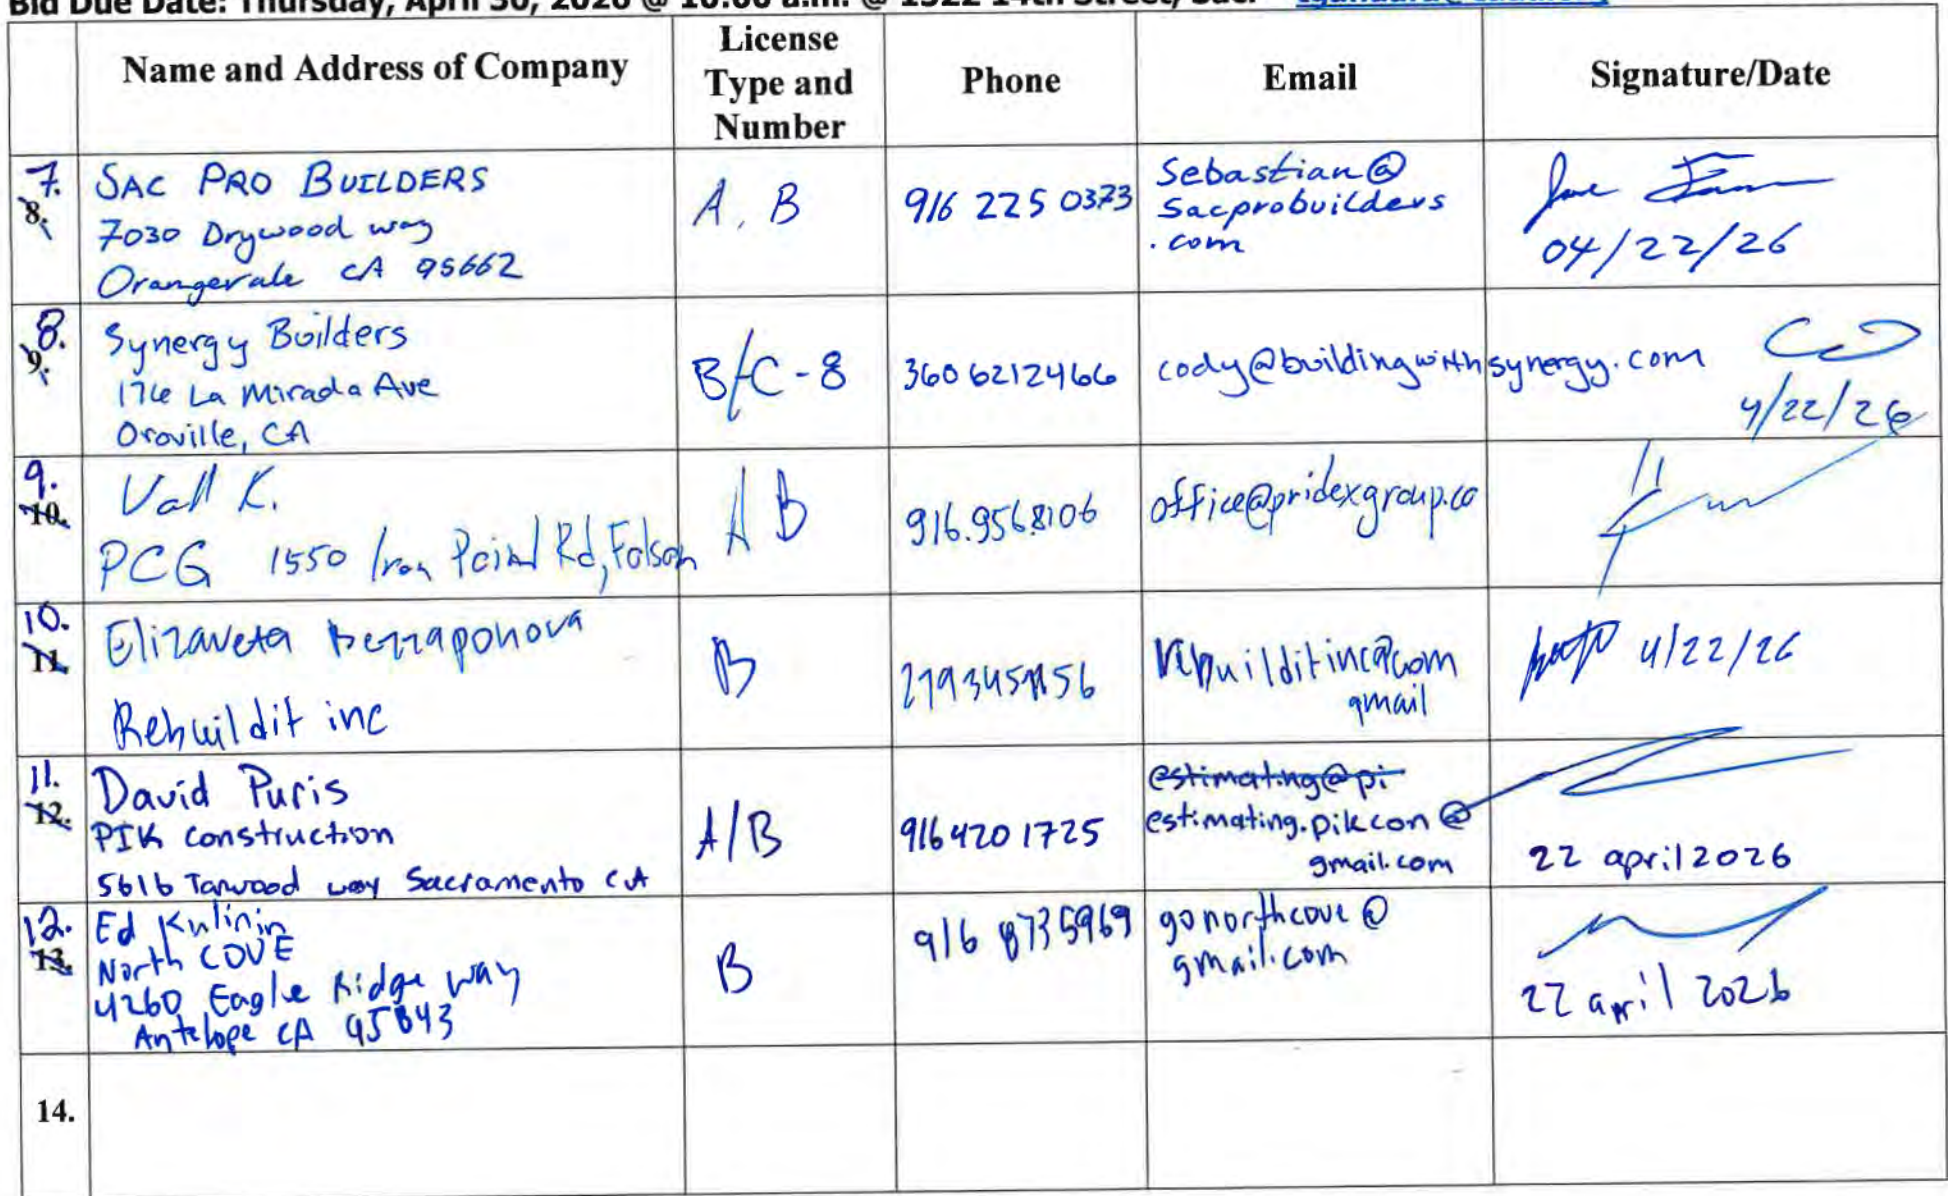 Bid Due Date: Thursday, April 30, 2026 @ 10:00 a.m. @ 1322 14th Street, Sac.
Name and Address of Company
License Type and Number
Phone
Email
Signature/Date
7.
8.
SAC PRO BUILDERS
7030 Drywood way
Orangevale CA 95662
A, B
916 225 0373
Sebastian@
Sacprobuilders
.com
04/22/26
8.
9.
Synergy Builders
176 La Mirada Ave
Oroville, CA
B/C-8
360 6212466
cody@buildingwithsynergy.com
4/22/26
9.
10.
Vall K.
PCG 1550 Iron Point Rd, Folsom
A B
916.9568106
office@pridexgroup.co
10.
11.
Elizaveta
Rebuildit inc
B
rebuilditinc@com
gmail
4/22/26
11.
12.
David Puris
PIK construction
5616 Tarwood way Sacramento CA
A/B
916 420 1725
estimating@pi
estimating.pikcon@
gmail.com
22 april 2026
12.
13.
Ed Kulinin
North COVE
4260 Eagle Ridge way
Antelope CA 95843
B
916 8735969
gonorthcove@
gmail.com
22 april 2026
14.